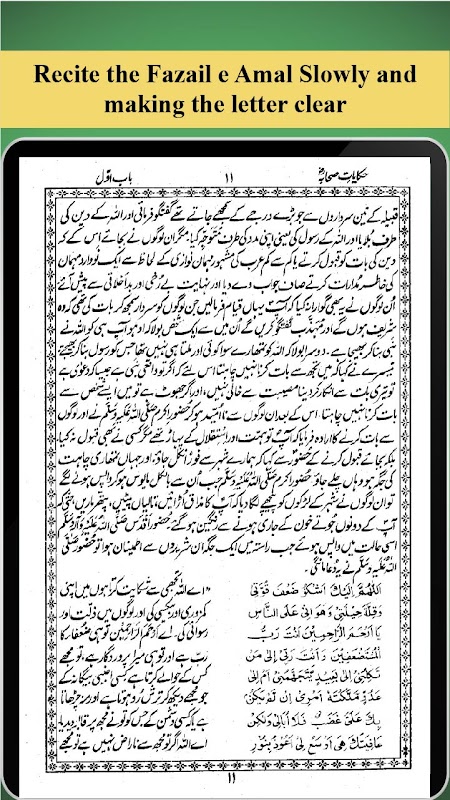 Recite the Fazail e Amal Slowly and
making the letter clear
حکایات صحابہؓ ۱۱ باب اوّل
قبیلہ کے تین سرداروں سے جو بڑے درجے کے سمجھے جاتے تھے گفتگو فرمائی اور اللہ کے دین کی
طرف بلایا اور اللہ کے رسول کی یعنی اپنی مدد کی طرف متوجہ کیا مگر ان لوگوں نے بجائے اس کے کہ
دین کی بات کو قبول کرتے یا کم سے کم عرب کی مشہور مہمان نوازی کے لحاظ سے ایک نووارد مہمان
کی خاطر مدارات کرتے صاف جواب دے دیا اور نہایت بے رخی اور بد اخلاقی سے پیش آئے
اُن لوگوں نے یہ بھی گوارا نہ کیا کہ آپ یہاں قیام فرما لیں جن لوگوں کو سردار سمجھ کر بات کی تھی کہ وہ
شریف ہوں گے اور مہذب گفتگو کریں گے اُن میں سے ایک شخص بولا کہ اوہو آپ ہی کو اللہ نے
نبی بنا کر بھیجا ہے۔ دوسرا بولا کہ اللہ کو تمھارے سوا کوئی اور ملتا ہی نہیں تھا جس کو رسول بنا کر بھیجتے
تیسرے نے کہا کہ میں تجھ سے بات کرنا نہیں چاہتا اس لئے کہ اگر تو واقعی نبی ہے جیسا کہ دعویٰ ہے
تو تیری بات سے انکار کر دینا مصیبت سے خالی نہیں، اور اگر جھوٹ ہے تو میں ایسے شخص سے
بات کرنا نہیں چاہتا۔ اس کے بعد ان لوگوں سے نا امید ہو کر حضور اکرم صلی اللہ علیہ وسلم نے اور لوگوں
سے بات کرنے کا ارادہ فرمایا کہ آپ تو ہمت اور استقلال کے پہاڑ تھے مگر کسی نے بھی قبول نہ کیا
بلکہ بجائے قبول کرنے کے حضور سے کہا کہ ہمارے شہر سے فوراً نکل جاؤ اور جہاں تمھاری چاہت
کی جگہ ہو وہاں چلے جاؤ۔ حضور اکرم صلی اللہ علیہ وسلم جب اُن سے بالکل مایوس ہو کر واپس ہونے لگے
تو ان لوگوں نے شہر کے لڑکوں کو پیچھے لگا دیا کہ آپ کا مذاق اڑائیں، تالیاں پیٹیں، پتھر ماریں حتی کہ
آپ کے دونوں جوتے خون کے جاری ہونے سے رنگین ہو گئے حضور اقدس صلی اللہ علیہ وآلہ وسلم
اسی حالت میں واپس ہوئے جب راستہ میں ایک جگہ ان شریروں سے اطمینان ہوا تو حضور صلی
اللہ علیہ وسلم نے یہ دعا مانگی۔
اَللّٰهُمَّ اِلَيْكَ اَشْكُوْ ضَعْفَ قُوَّتِيْ "اے اللہ تجھی سے شکایت کرتا ہوں میں اپنی
وَقِلَّةَ حِيْلَتِيْ وَهَوَانِيْ عَلَى النَّاسِ کمزوری اور بیکسی کی اور لوگوں میں ذلت اور
يَا اَرْحَمَ الرَّاحِمِيْنَ اَنْتَ رَبُّ رسوائی کی۔ اے ارحم الراحمین تو ہی ضعفا کا
الْمُسْتَضْعَفِيْنَ وَاَنْتَ رَبِّيْ اِلٰى مَنْ رب ہے اور تو ہی میرا پروردگار ہے، تو مجھے
تَكِلُنِيْ اِلٰى بَعِيْدٍ يَّتَجَهَّمُنِيْ اَمْ اِلٰى کس کے حوالے کرتا ہے کسی اجنبی بیگانہ کے
عَدُوٍّ مَلَّكْتَهٗ اَمْرِيْ اِنْ لَّمْ يَكُنْ جو مجھے دیکھ کر ترش رو ہوتا ہے اور منہ چڑھاتا
بِكَ عَلَيَّ غَضَبٌ فَلَا اُبَالِيْ وَلٰكِنْ ہے یا کہ کسی دشمن کے جس کو تو نے مجھ پر قابو دیدیا۔
عَافِيَتُكَ هِيَ اَوْسَعُ لِيْ اَعُوْذُ بِنُوْرِ اے اللہ اگر تو مجھ سے ناراض نہیں ہے تو مجھے
۱۱